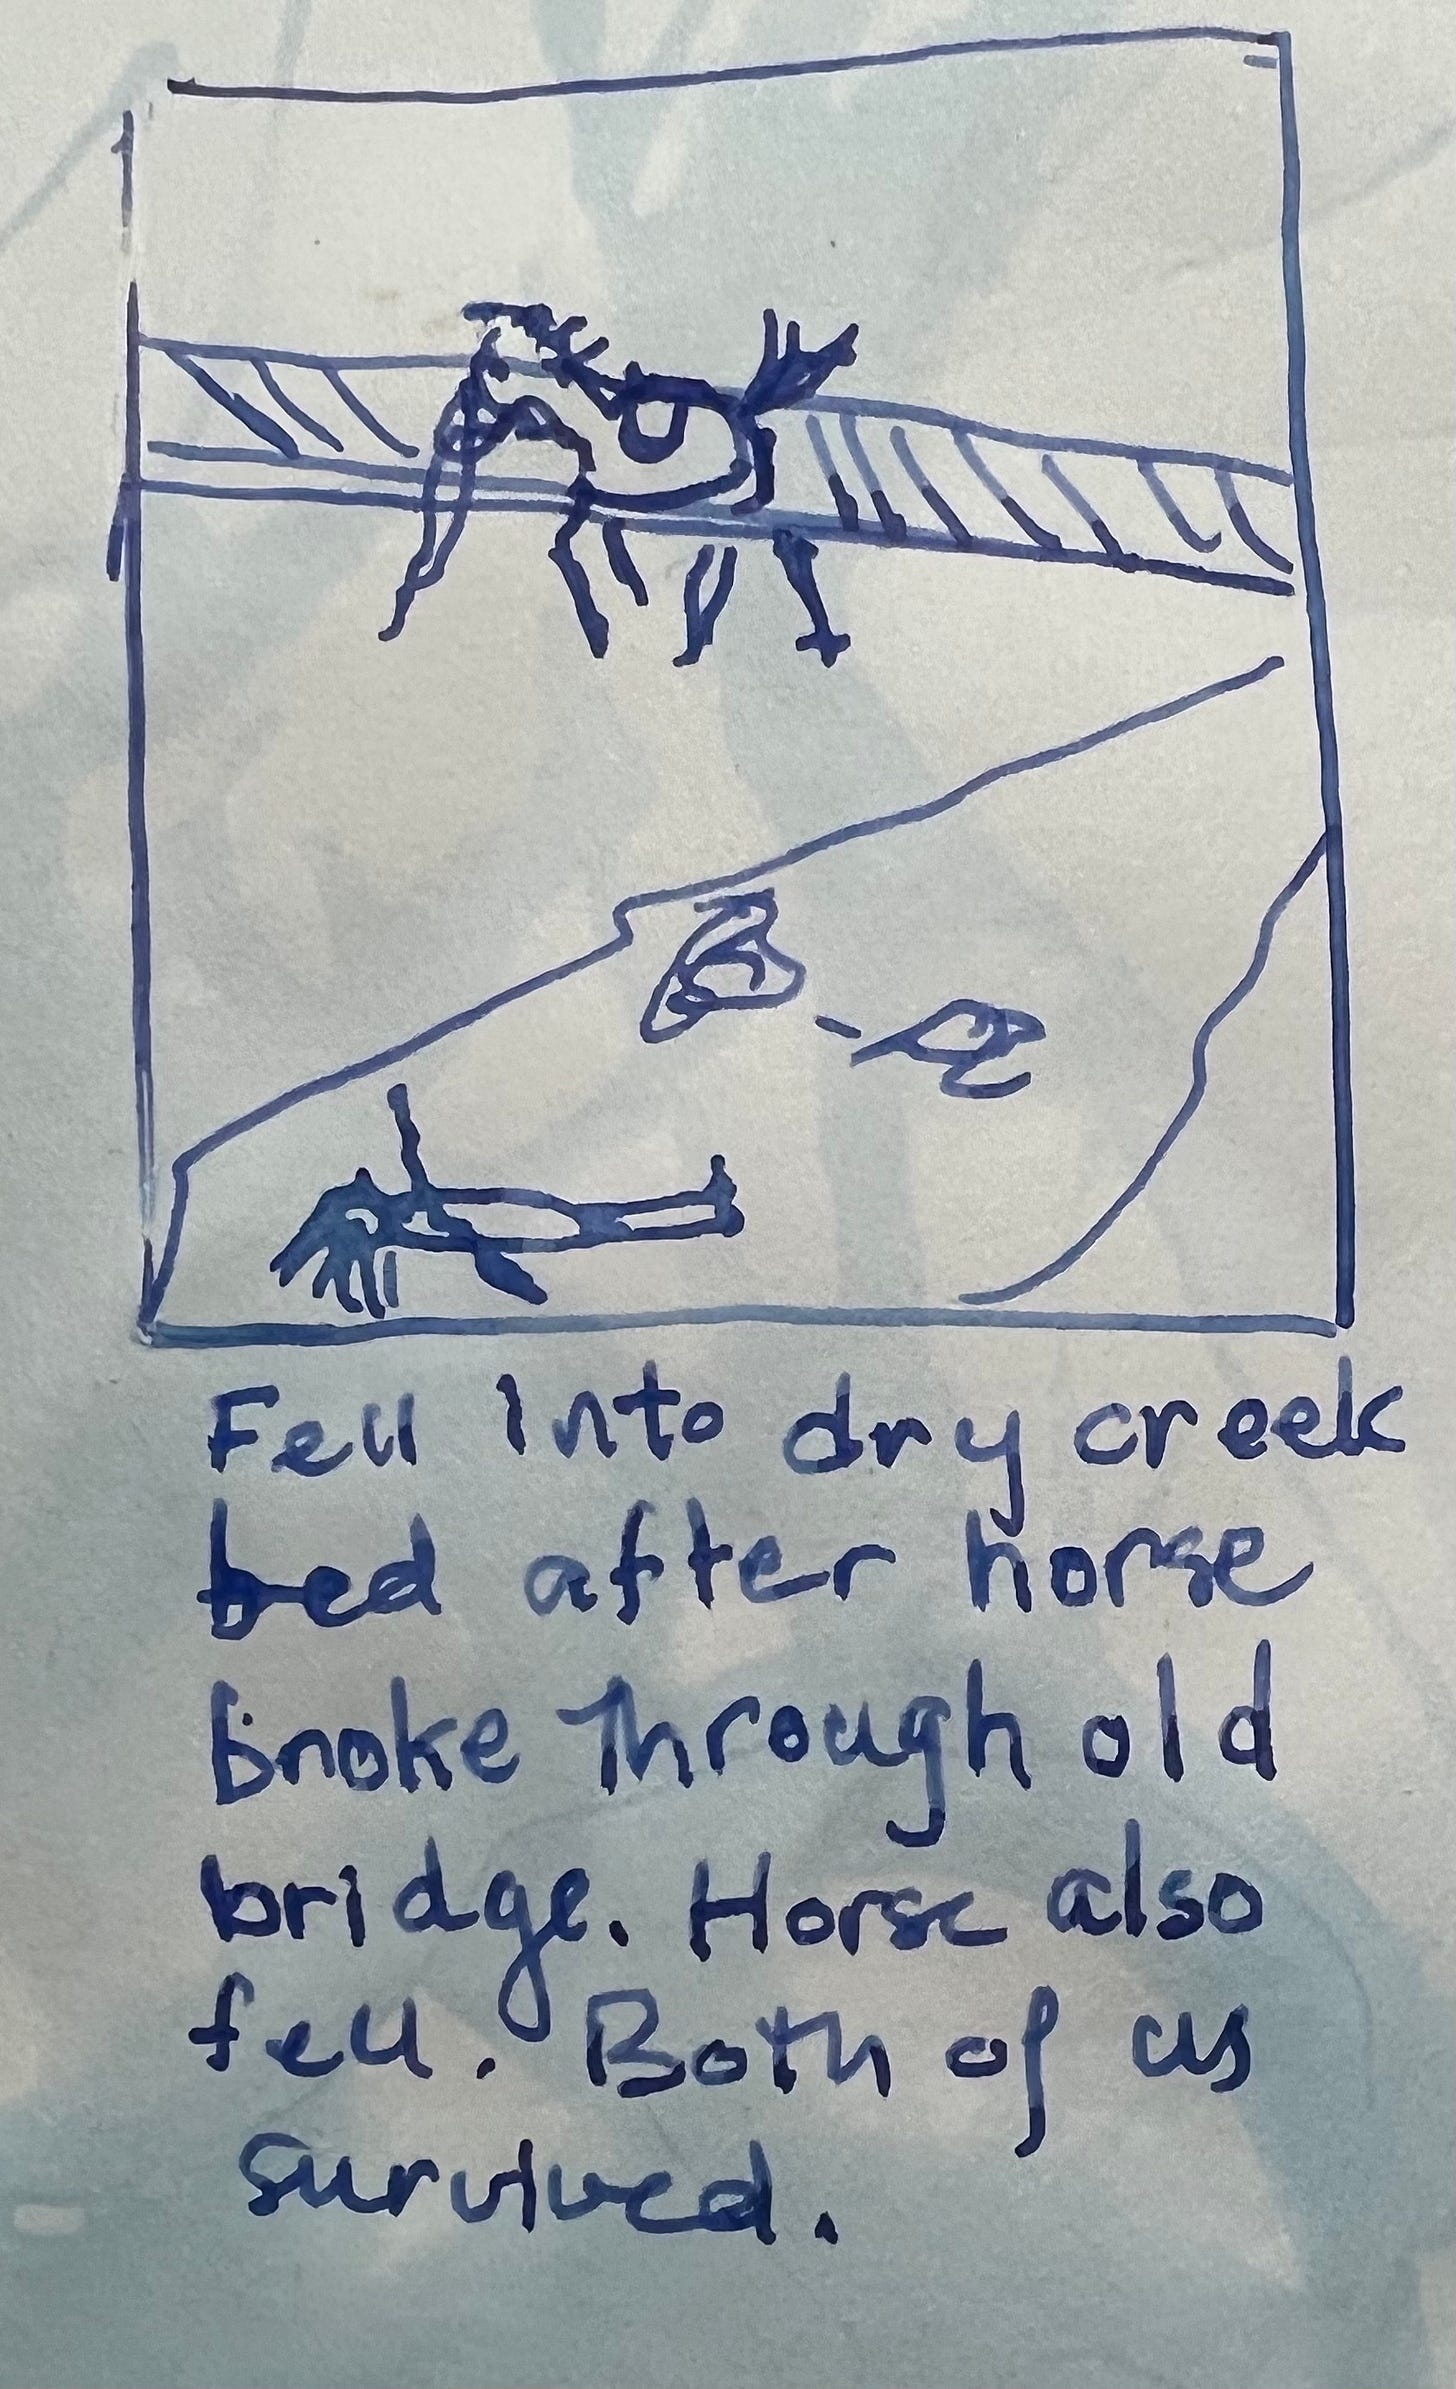 Fell into dry creek
bed after horse
broke through old
bridge. Horse also
fell. Both of us
survived.